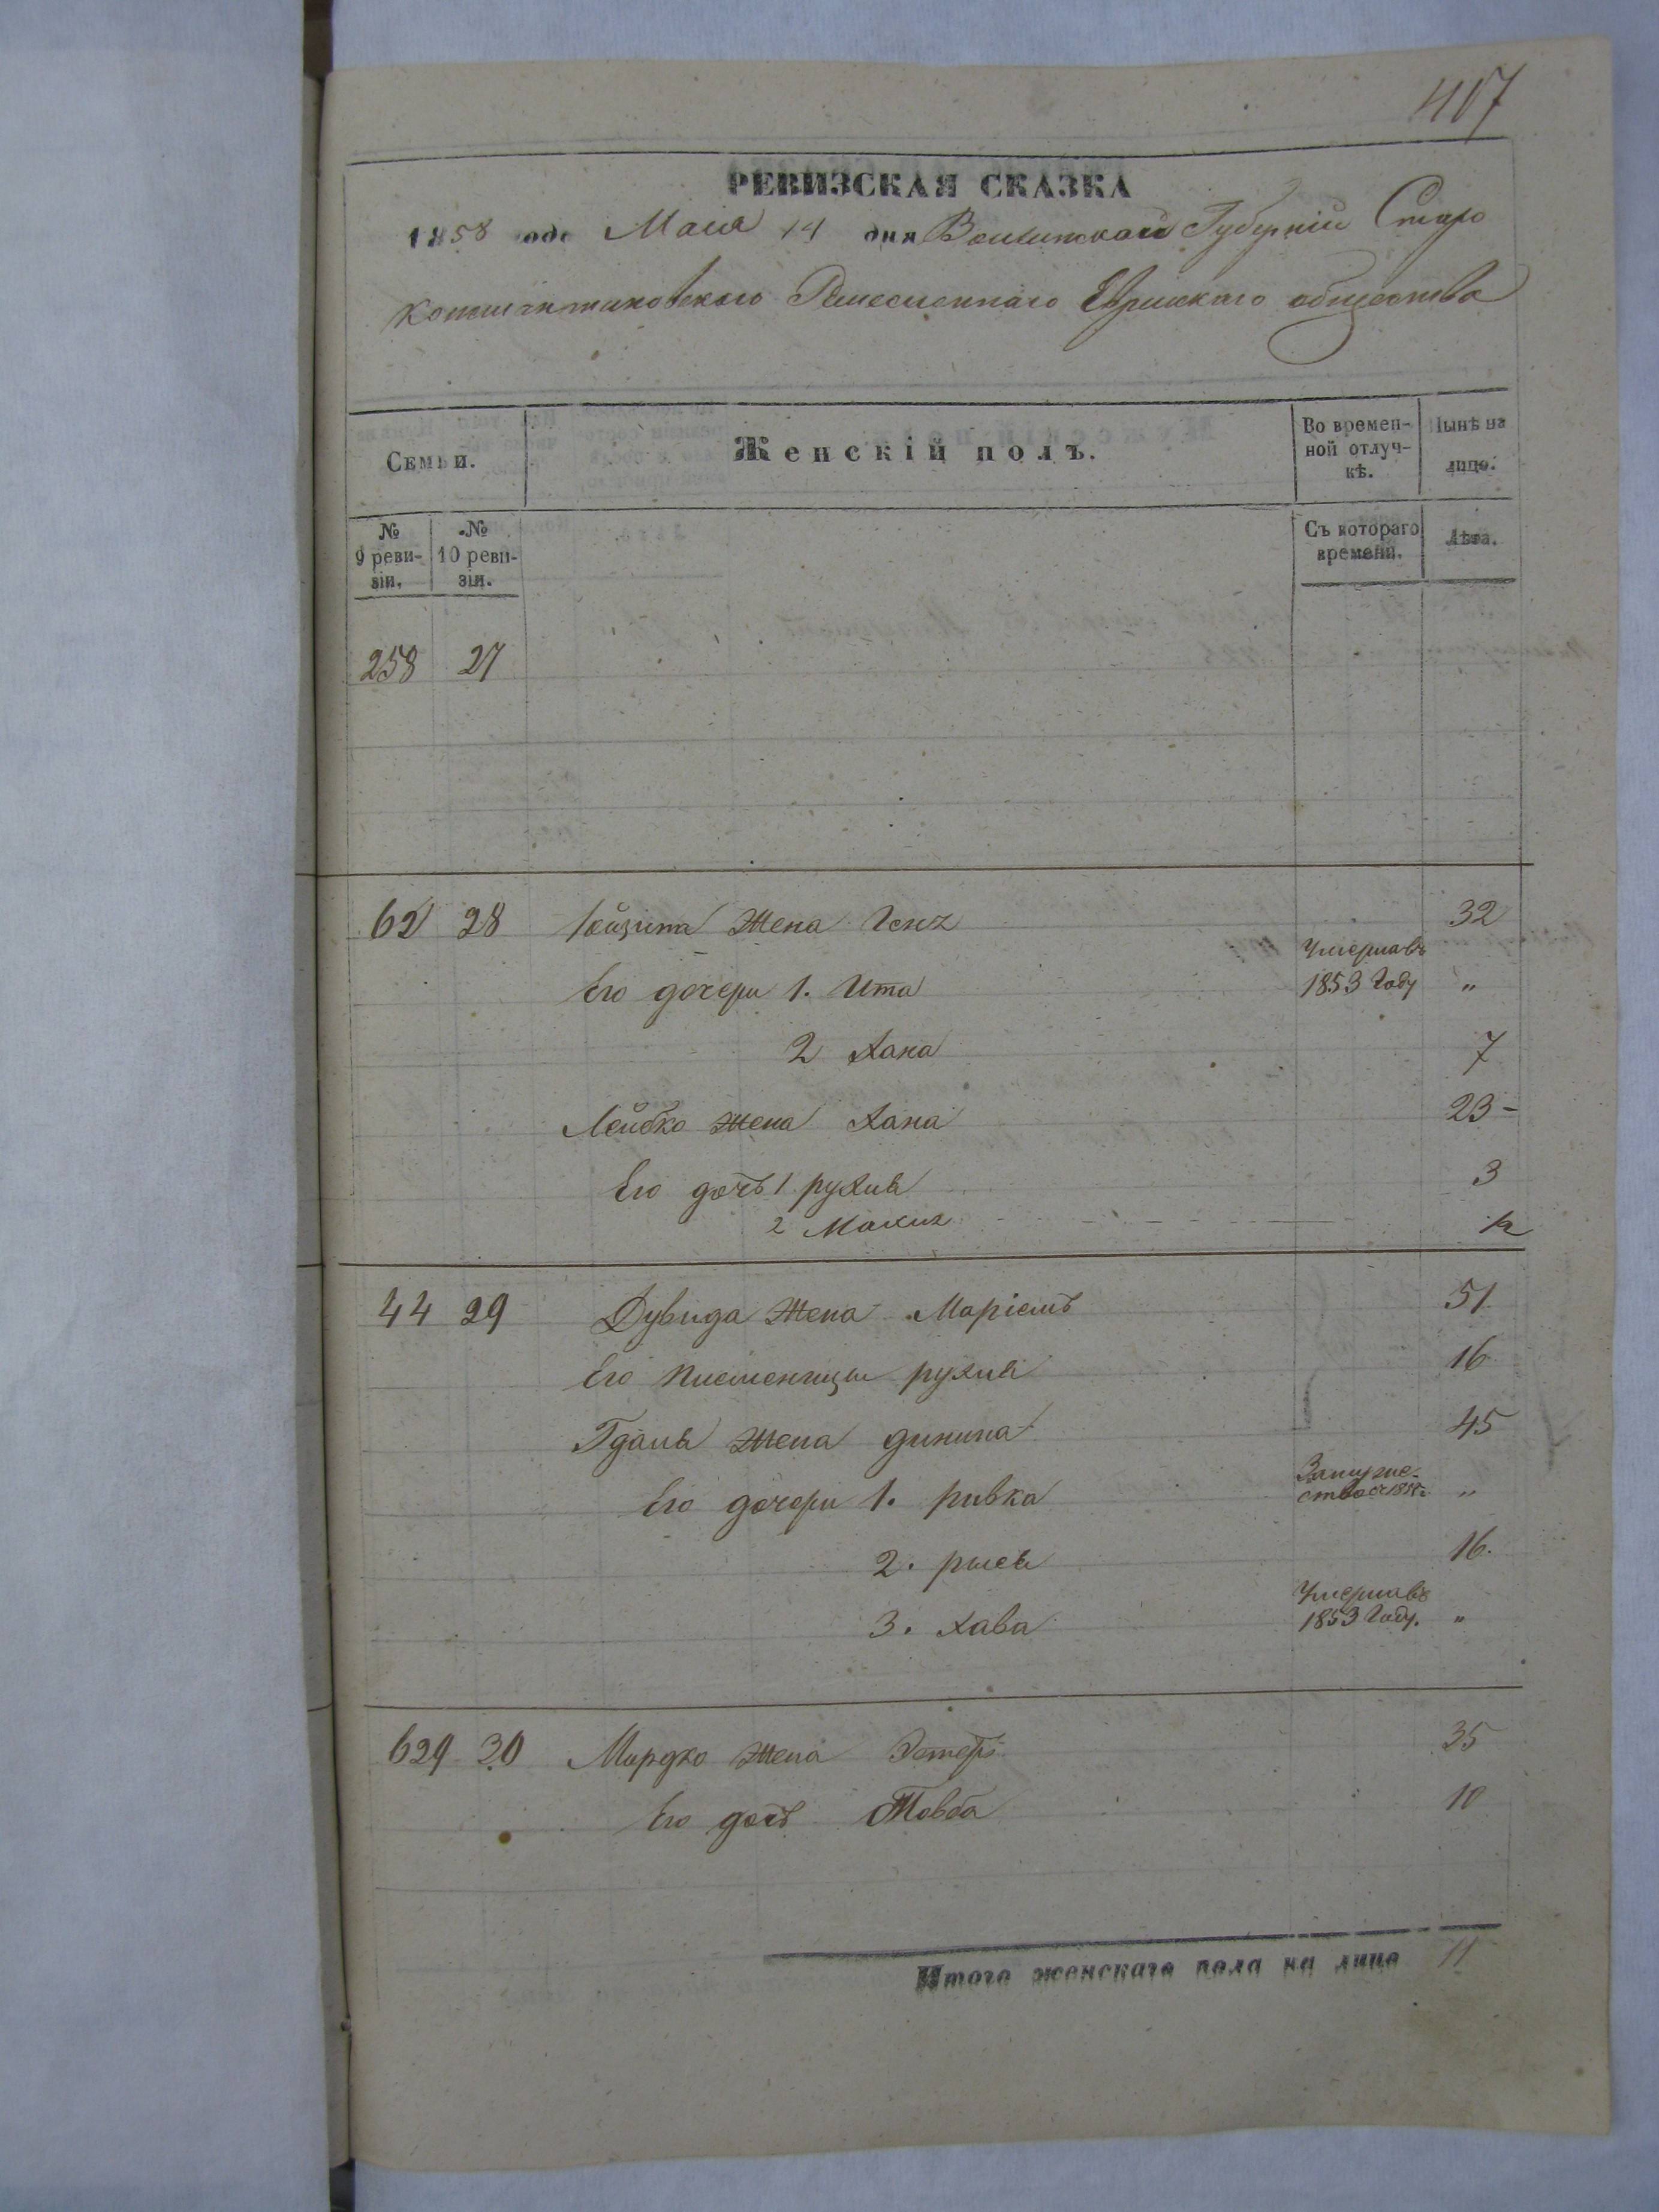 407
РЕВИЗСКАЯ СКАЗКА
1858 года Маия 14 дня Волынской Губерніи Старо
константиновскаго Ремесленнаго Еврейскаго общества
Семьи. Женскій полъ. Во времен-ной отлуч-кѣ. Нынѣ на лицо.
№ 9 реви-зіи. № 10 реви-зіи. Съ котораго времени. Лѣта.
258 27
62 28 жена 32
Его дочери 1. Ита Умерла въ 1853 Году "
2 Хана 7
Лейбко жена Хана 23 -
Его дочь 1 рухля 3
2
44 29 Дувида жена Маріемъ 51
Его племенница рухля 16
жена 45
Его дочери 1. ривка Замуже-ство "
2. рыся 16.
3. хава Умерла въ 1853 Году. "
629 30 Мордко жена Эстеръ 35
Его дочь Товба 10
Итого женскаго пола на лицо 11